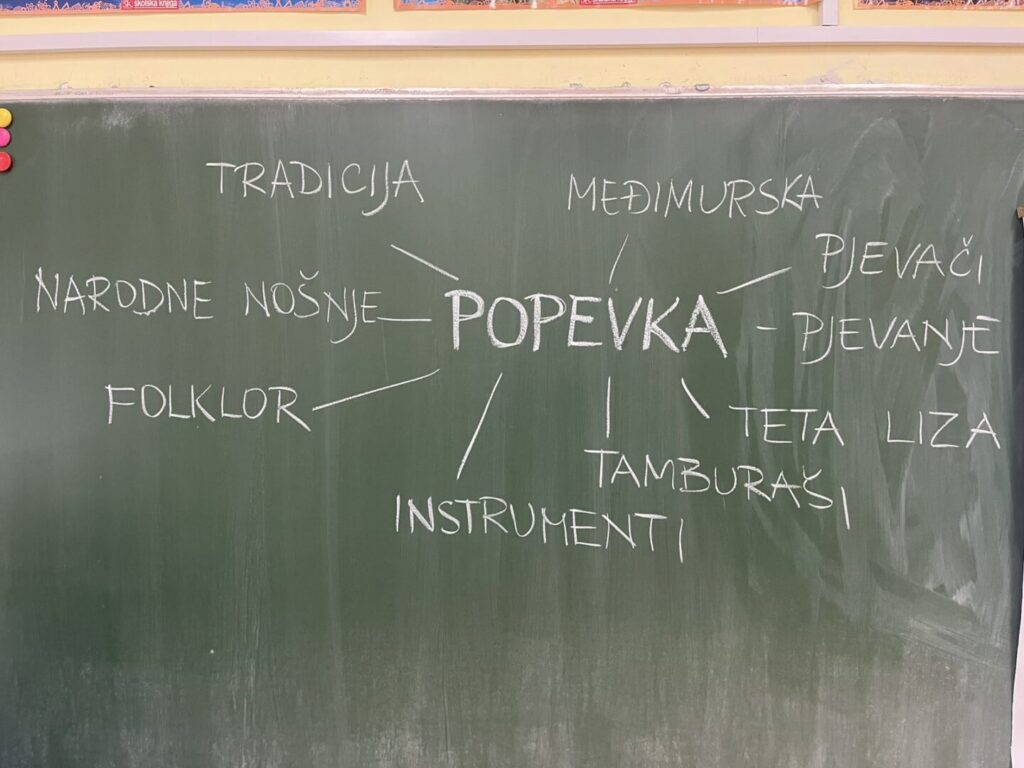 školska knjiga
TRADICIJA
MEĐIMURSKA
PJEVAČI
NARODNE NOŠNJE
POPEVKA
PJEVANJE
FOLKLOR
TETA LIZA
TAMBURAŠI
INSTRUMENTI